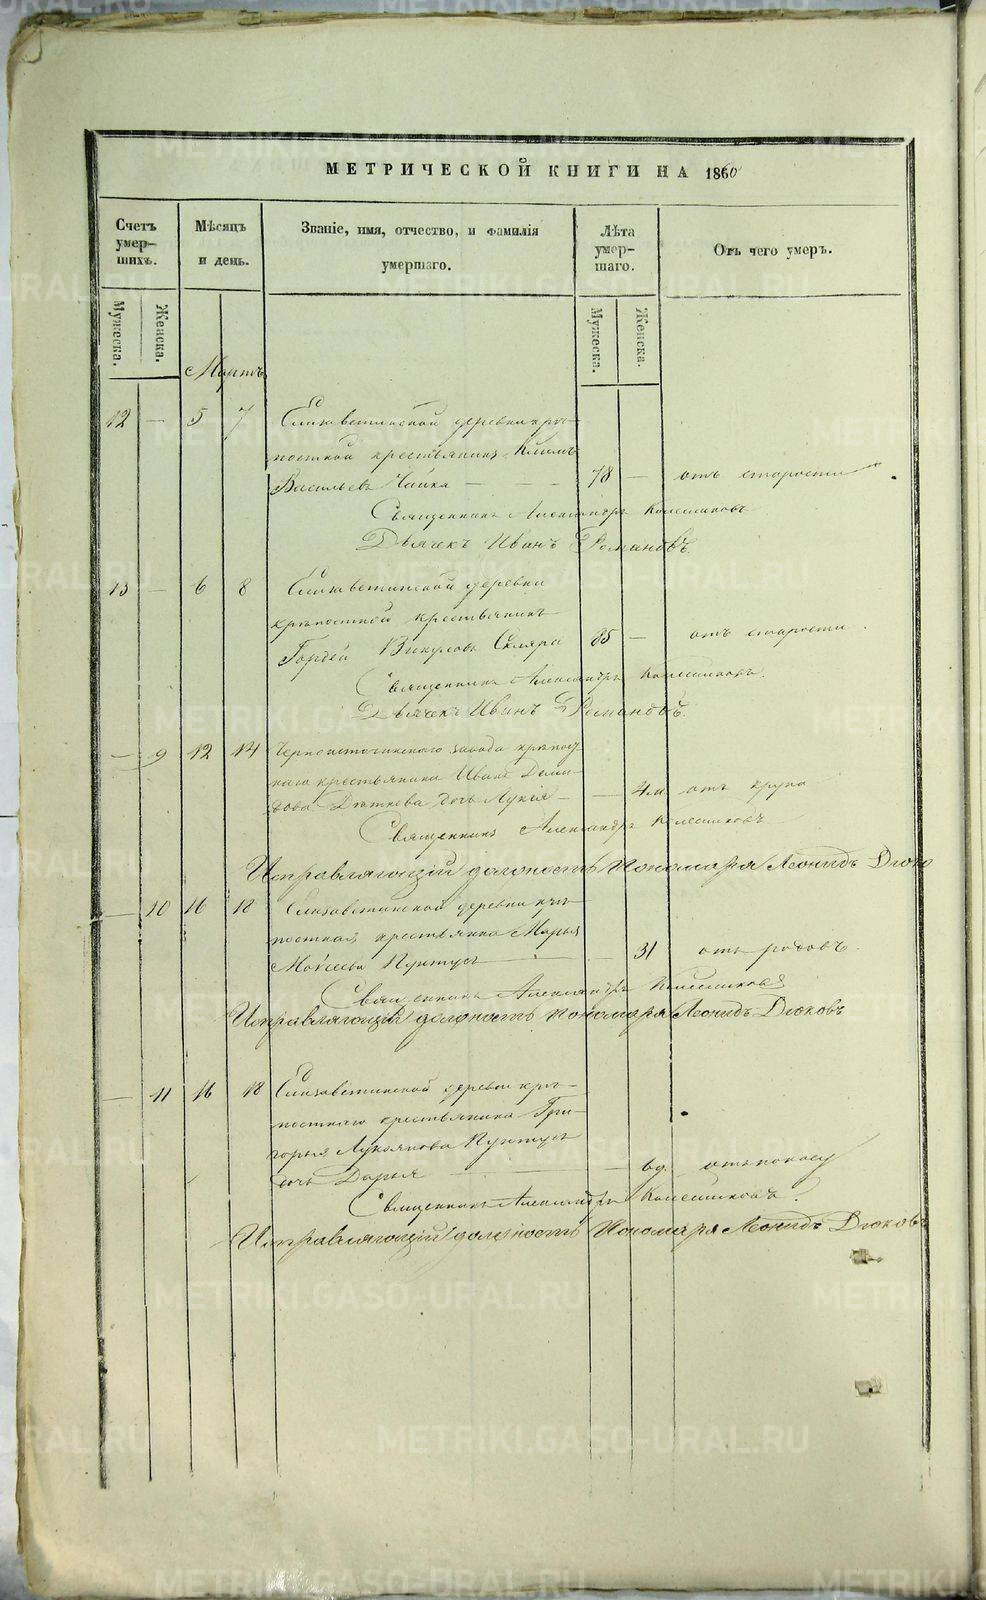 МЕТРИЧЕСКОЙ КНИГИ НА 1860
Счетъ умер-шихъ.
Мѣсяцъ и день.
Званіе, имя, отчество, и фамилія умершаго.
Лѣта умер-шаго.
Отъ чего умеръ.
Мужеска.
Женска.
Мужеска.
Женска.
Мартъ
12 — 5 7 Елизаветинской деревни крѣ-
постной крестьянинъ Климъ
Васильевъ Чайка — — — 78 — отъ старости
Священникъ Александръ Колесниковъ
Дьячекъ Иванъ Романовъ.
13 — 6 8 Елизаветинской деревни
крѣпостной крестьянинъ
Гордей Викуловъ Скляра 85 — отъ старости.
Священникъ Александръ Колесниковъ.
Дьячекъ Иванъ Романовъ.
— 9 12 14 Черноисточинскаго завода крѣпост
наго крестьянина Ивана Деми-
дова дочь Лукія — — 4 м отъ крупа
Священникъ Александръ Колесниковъ
Исправляющій должность Пономаря Леонидъ Дюко
— 10 16 18 Елизаветинской деревни крѣ-
постная крестьянка Марья
Моѵсеева Пунтусъ — — 31 отъ родовъ.
Священникъ Александръ Колесниковъ
Исправляющій должность Пономаря Леонидъ Дюковъ
— 11 16 18 Елизаветинской деревни крѣ-
постнаго крестьянина Гри-
горья Лукьянова Пунтусъ
дочь Дарья — — 6 д. отъ поносу
Священникъ Александръ Колесниковъ.
Исправляющій должность Пономаря Леонидъ Дюковъ
METRIKI.GASO-URAL.RU